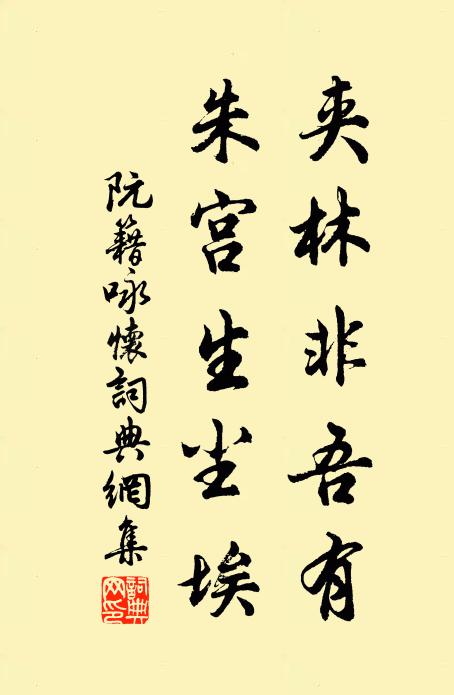 夹林非吾有
朱宫生尘埃
阮籍咏懷詞典網集
詞典网印